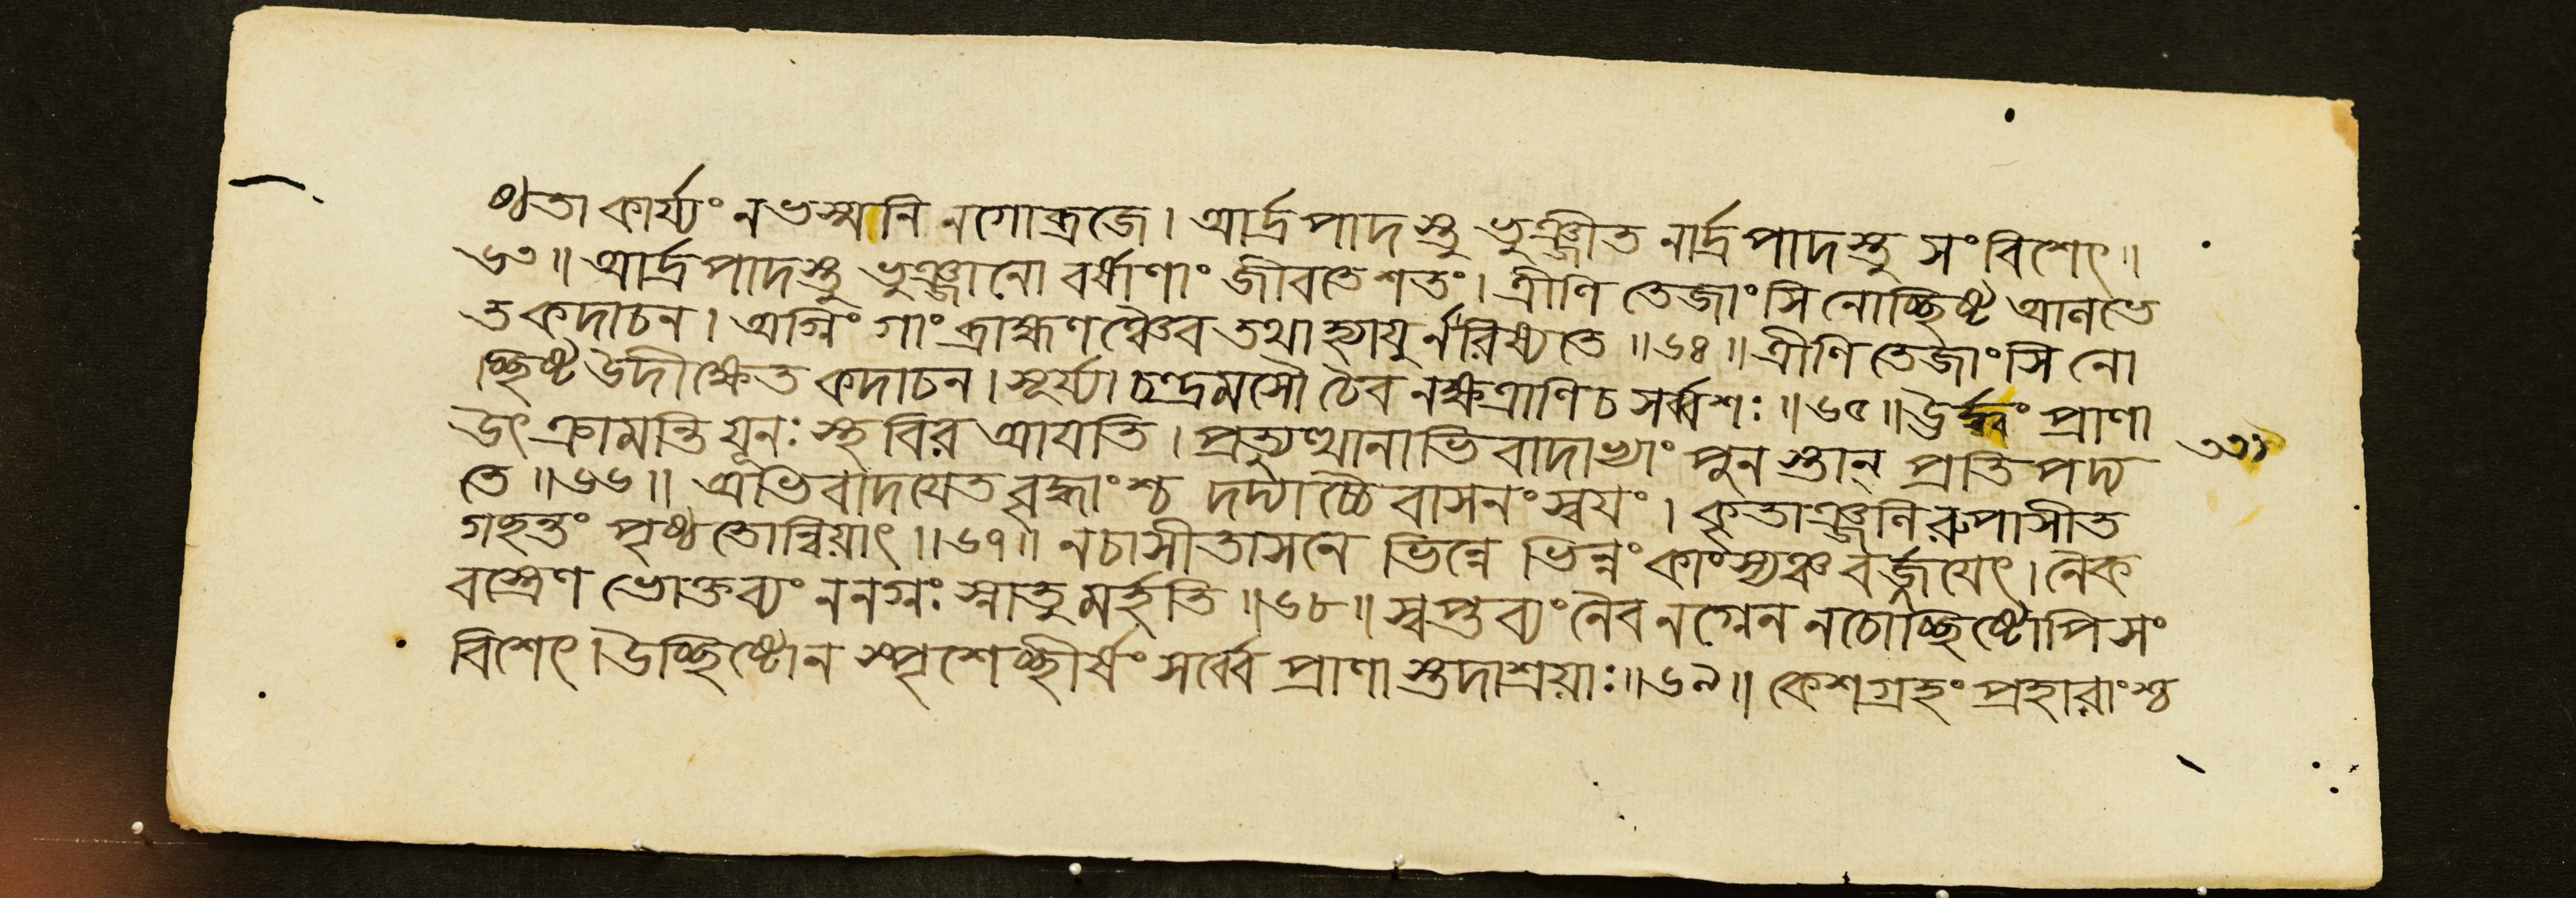 ণ্ঠতা কার্য্যং নভস্মনি নগোব্রজে। আর্দ্রপাদস্তু ভুঞ্জীত নার্দ্রপাদস্তু সংবিশেৎ॥
৬৩॥ আর্দ্রপাদস্তু ভুঞ্জানো বর্ষাণাং জীবতে শতং। ত্রীণি তেজাংসি নোচ্ছিষ্ট আলভে
ত কদাচন। অগ্নিং গাং ব্রাহ্মণঞ্চৈব তথাহ্যায়ুর্নরিষ্যতে॥৬৪॥ ত্রীণি তেজাংসি নো
চ্ছিষ্ট উদীক্ষেত কদাচন। সূর্য্যাচন্দ্রমসৌ চৈব নক্ষত্রাণি চ সর্ব্বশঃ॥৬৫॥ ঊর্দ্ধ্বং প্রাণা
উৎক্রামন্তি যূনঃ স্থবির আয়তি। প্রত্যুত্থানাভিবাদাভ্যাং পুনস্তান্ প্রতিপদ্য
তে॥৬৬॥ অভিবাদয়েত বৃদ্ধাংশ্চ দদ্যাচ্চৈবাসনং স্বয়ং। কৃতাঞ্জলিরুপাসীত
গছন্তং পৃষ্ঠতোন্বিয়াৎ॥৬৭॥ নচাসীতাসনে ভিন্নে ভিন্নং কাংস্যঞ্চ বর্জ্জয়েৎ। নৈক
বস্ত্রেণ ভোক্তব্যং ননগ্নঃ স্নাতুমর্হতি॥৬৮॥ স্বপ্তব্যং নৈব নগ্নেন নচোচ্ছিষ্টোপি সং
বিশেৎ। উচ্ছিষ্টোন স্পৃশেচ্ছীর্ষং সর্ব্বে প্রাণাস্তদাশ্রয়াঃ॥৬৯॥ কেশগ্রহং প্রহারাংশ্চ